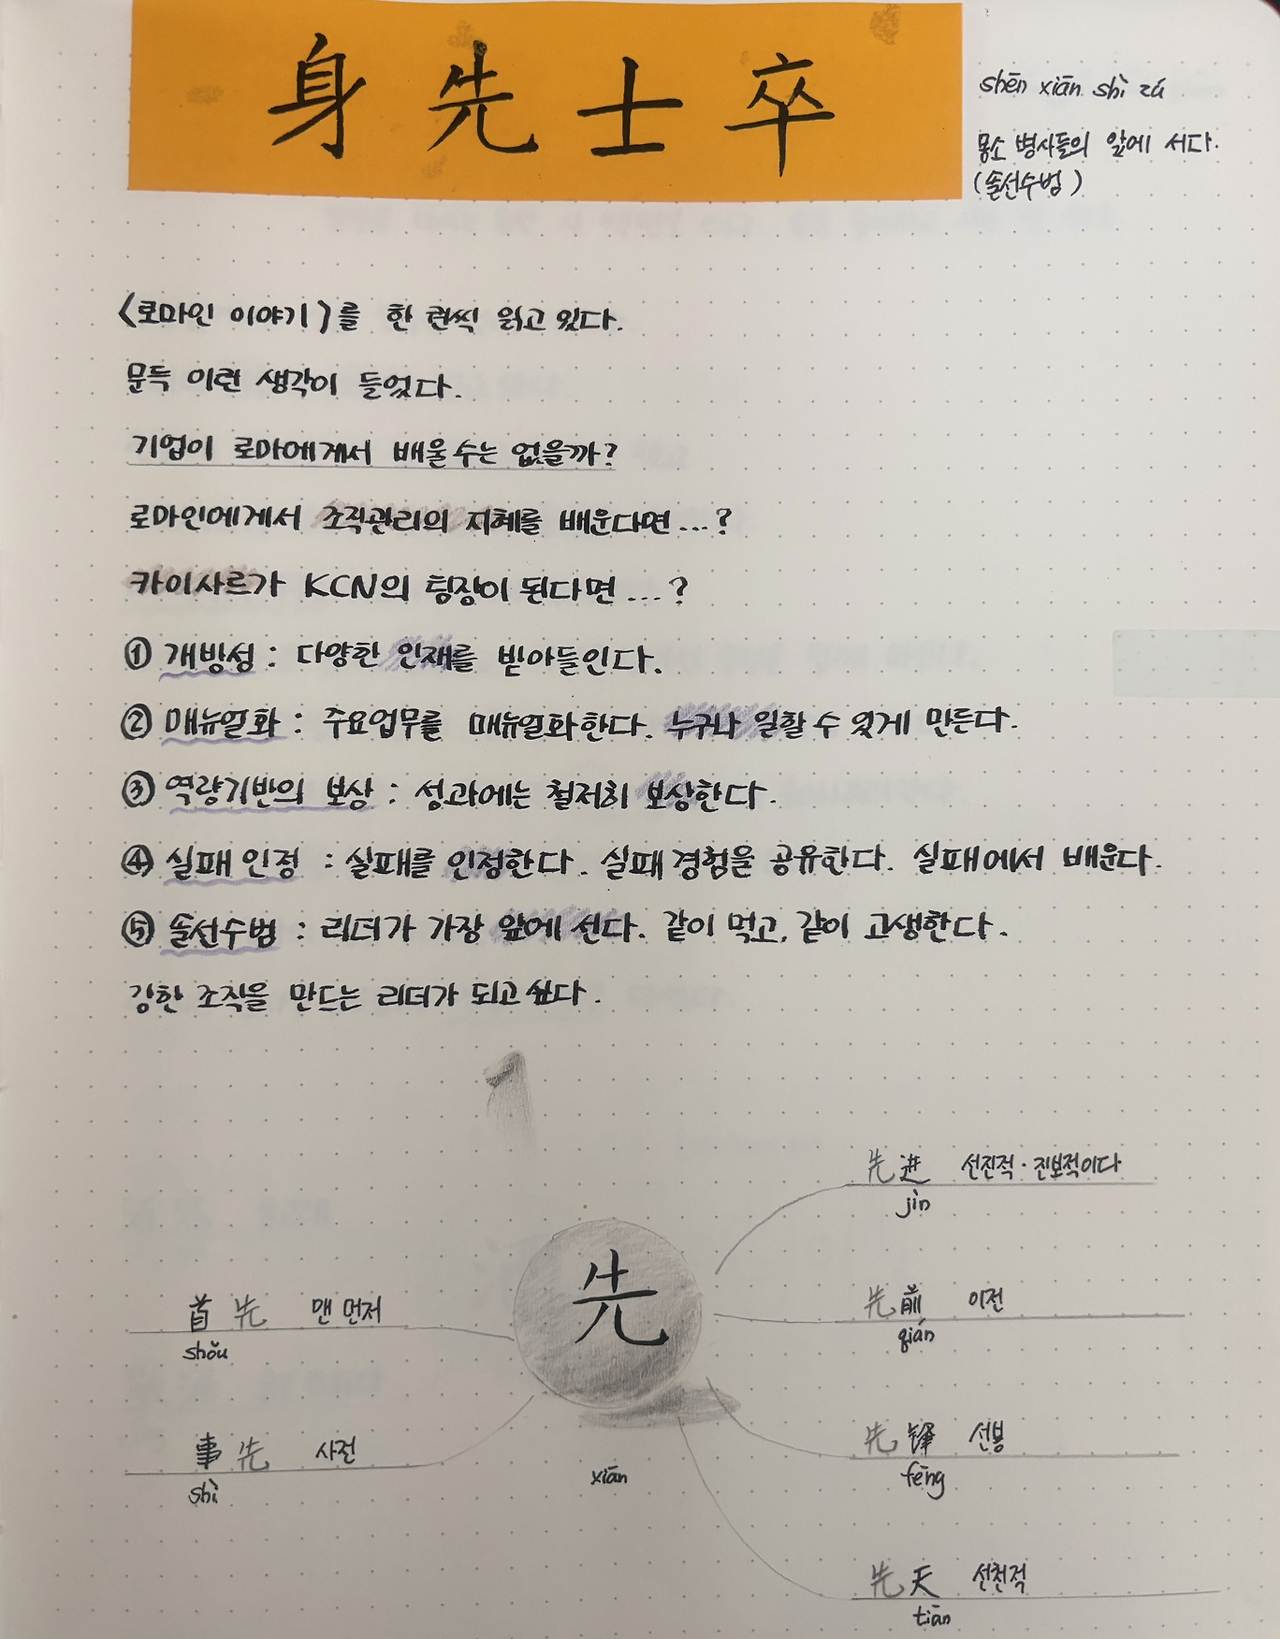 身先士卒
shēn xiān shì zú
몸소 병사들의 앞에 서다.
(솔선수범)
<로마인 이야기>를 한 권씩 읽고 있다.
문득 이런 생각이 들었다.
기업이 로마에게서 배울 수는 없을까?
로마인에게서 조직관리의 지혜를 배운다면...?
카이사르가 KCN의 팀장이 된다면...?
① 개방성 : 다양한 인재를 받아들인다.
② 매뉴얼화 : 주요업무를 매뉴얼화한다. 누구나 일할 수 있게 만든다.
③ 역량기반의 보상 : 성과에는 철저히 보상한다.
④ 실패 인정 : 실패를 인정한다. 실패 경험을 공유한다. 실패에서 배운다.
⑤ 솔선수범 : 리더가 가장 앞에 선다. 같이 먹고, 같이 고생한다.
강한 조직을 만드는 리더가 되고 싶다.
先
xiān
首先 맨 먼저
shǒu
事先 사전
shì
先进 선진적·진보적이다
jìn
先前 이전
qián
先锋 선봉
fēng
先天 선천적
tiān